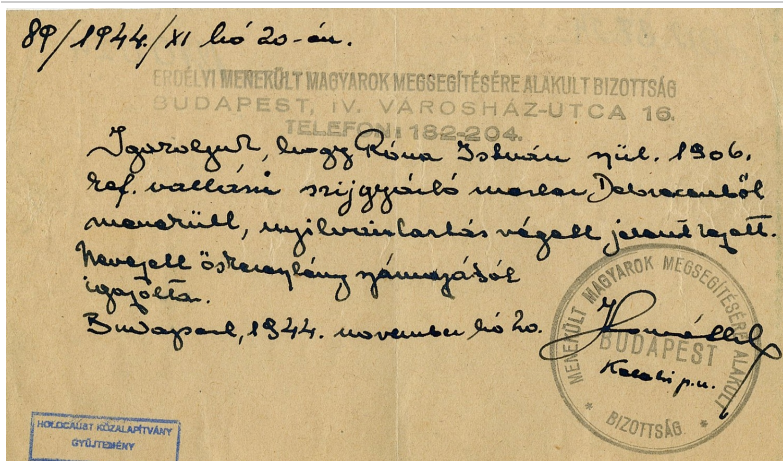 89/1944./XI hó 20-án.
ERDÉLYI MENEKÜLT MAGYAROK MEGSEGÍTÉSÉRE ALAKULT BIZOTTSÁG
BUDAPEST, IV. VÁROSHÁZ-UTCA 16.
TELEFON: 182-204.
Igazoljuk, hogy Róna István szül. 1906.
ref. vallású szijgyártó mester Debrecenből
menekült, nyilvántartás végett jelentkezett.
Nevezett őskeresztény származását
igazolta.
Budapest, 1944. november hó 20.
MENEKÜLT MAGYAROK MEGSEGÍTÉSÉRE ALAKULT
BUDAPEST
BIZOTTSÁG
p.u.
HOLOCAUST KÖZALAPÍTVÁNY
GYŰJTEMÉNY